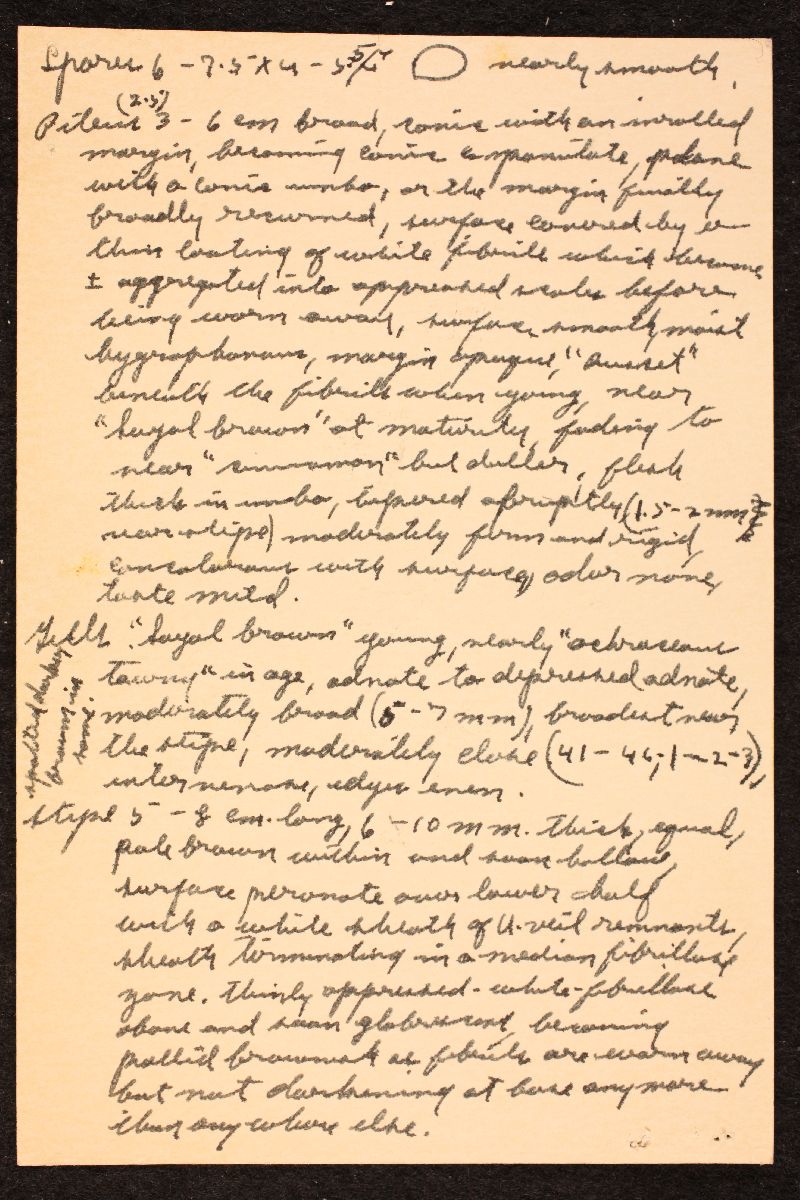 Spores 6 - 7.5 X 4 - 5 nearly smooth.
(2.5)
Pileus 3 - 6 cm broad, conic with an inrolled
margin, becoming conic campanulate, plane
with a conic umbo, or the margin finally
broadly recurved, surface covered by a
thin coating of white fibrils which become
± aggregated into appressed scales before
being worn away, surface smooth, moist
hygrophanous, margin opaque, "russet"
beneath the fibrils when young, near
"Sayal brown" at maturity, fading to
near "cinnamon" but duller, flesh
thick in umbo, tapered abruptly (1.5 - 2 mm
near stipe) moderately firm and rigid,
concolorous with surface, odor none,
taste mild.
Gills "Sayal brown" young, nearly "ochraceous
tawny" in age, adnate to depressed adnate,
moderately broad (5 - 7 mm), broadest near
the stipe, moderately close (41 - 46; 1 - 2 - 3),
intervenose, edges even.
spotted darker
brown in
some.
Stipe 5 - 8 cm. long, 6 - 10 mm. thick, equal,
pale brown within and soon hollow,
surface peronate over lower half
with a white sheath of U. veil remnants,
sheath terminating in a median fibrillose
zone. thinly appressed-white-fibrillose
above and soon glabrescent, becoming
pallid brownish as fibrils are worn away
but not darkening at base anymore
than anywhere else.